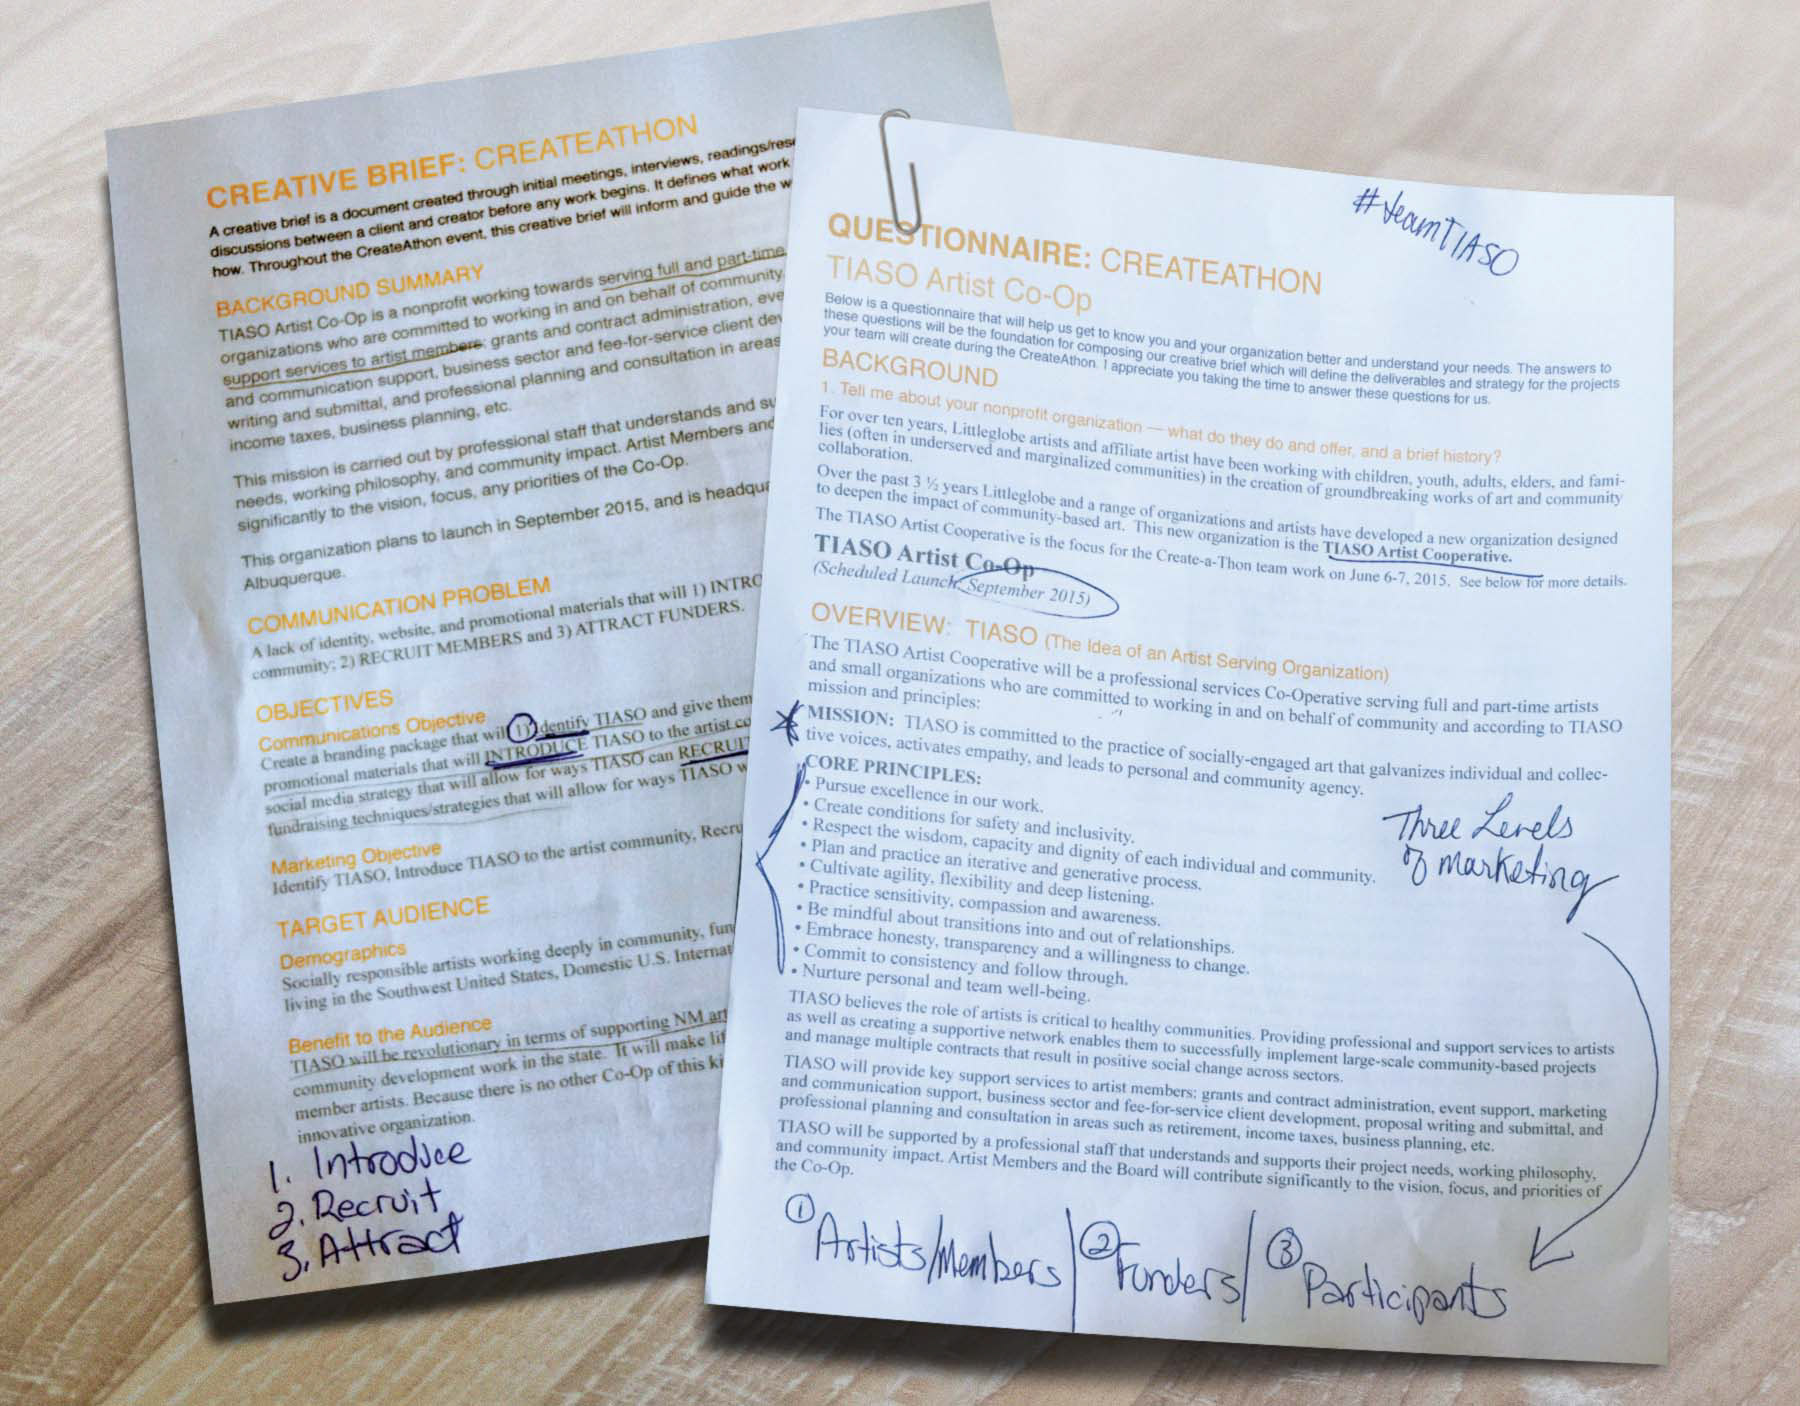 CREATIVE BRIEF: CREATEATHON
A creative brief is a document created through initial meetings, interviews, readings/rese
discussions between a client and creator before any work begins. It defines what work
how. Throughout the CreateAthon event, this creative brief will inform and guide the w
BACKGROUND SUMMARY
TIASO Artist Co-Op is a nonprofit working towards serving full and part-time
organizations who are committed to working in and on behalf of community.
support services to artist members: grants and contract administration, eve
and communication support, business sector and fee-for-service client dev
writing and submittal, and professional planning and consultation in areas
income taxes, business planning, etc.
This mission is carried out by professional staff that understands and su
needs, working philosophy, and community impact. Artist Members and
significantly to the vision, focus, any priorities of the Co-Op.
This organization plans to launch in September 2015, and is headqua
Albuquerque.
COMMUNICATION PROBLEM
A lack of identity, website, and promotional materials that will 1) INTRO
community; 2) RECRUIT MEMBERS and 3) ATTRACT FUNDERS.
OBJECTIVES
Communications Objective
Create a branding package that will 1) identify TIASO and give them
promotional materials that will INTRODUCE TIASO to the artist co
social media strategy that will allow for ways TIASO can RECRUIT
fundraising techniques/strategies that will allow for ways TIASO w
Marketing Objective
Identify TIASO, Introduce TIASO to the artist community, Recru
TARGET AUDIENCE
Demographics
Socially responsible artists working deeply in community, fun
living in the Southwest United States, Domestic U.S. Internat
Benefit to the Audience
TIASO will be revolutionary in terms of supporting NM art
community development work in the state. It will make lif
member artists. Because there is no other Co-Op of this ki
innovative organization.
1. Introduce
2. Recruit
3. Attract
#teamTIASO
QUESTIONNAIRE: CREATEATHON
TIASO Artist Co-Op
Below is a questionnaire that will help us get to know you and your organization better and understand your needs. The answers to
these questions will be the foundation for composing our creative brief which will define the deliverables and strategy for the projects
your team will create during the CreateAthon. I appreciate you taking the time to answer these questions for us.
BACKGROUND
1. Tell me about your nonprofit organization — what do they do and offer, and a brief history?
For over ten years, Littleglobe artists and affiliate artist have been working with children, youth, adults, elders, and fami-
lies (often in underserved and marginalized communities) in the creation of groundbreaking works of art and community
collaboration.
Over the past 3 ½ years Littleglobe and a range of organizations and artists have developed a new organization designed
to deepen the impact of community-based art. This new organization is the TIASO Artist Cooperative.
The TIASO Artist Cooperative is the focus for the Create-a-Thon team work on June 6-7, 2015. See below for more details.
TIASO Artist Co-Op
(Scheduled Launch: September 2015)
OVERVIEW: TIASO (The Idea of an Artist Serving Organization)
The TIASO Artist Cooperative will be a professional services Co-Operative serving full and part-time artists
and small organizations who are committed to working in and on behalf of community and according to TIASO
mission and principles:
MISSION: TIASO is committed to the practice of socially-engaged art that galvanizes individual and collec-
tive voices, activates empathy, and leads to personal and community agency.
CORE PRINCIPLES:
• Pursue excellence in our work.
• Create conditions for safety and inclusivity.
• Respect the wisdom, capacity and dignity of each individual and community.
• Plan and practice an iterative and generative process.
• Cultivate agility, flexibility and deep listening.
• Practice sensitivity, compassion and awareness.
• Be mindful about transitions into and out of relationships.
• Embrace honesty, transparency and a willingness to change.
• Commit to consistency and follow through.
• Nurture personal and team well-being.
Three Levels
of marketing
TIASO believes the role of artists is critical to healthy communities. Providing professional and support services to artists
as well as creating a supportive network enables them to successfully implement large-scale community-based projects
and manage multiple contracts that result in positive social change across sectors.
TIASO will provide key support services to artist members: grants and contract administration, event support, marketing
and communication support, business sector and fee-for-service client development, proposal writing and submittal, and
professional planning and consultation in areas such as retirement, income taxes, business planning, etc.
TIASO will be supported by a professional staff that understands and supports their project needs, working philosophy,
and community impact. Artist Members and the Board will contribute significantly to the vision, focus, and priorities of
the Co-Op.
① Artists/Members | ② Funders | ③ Participants